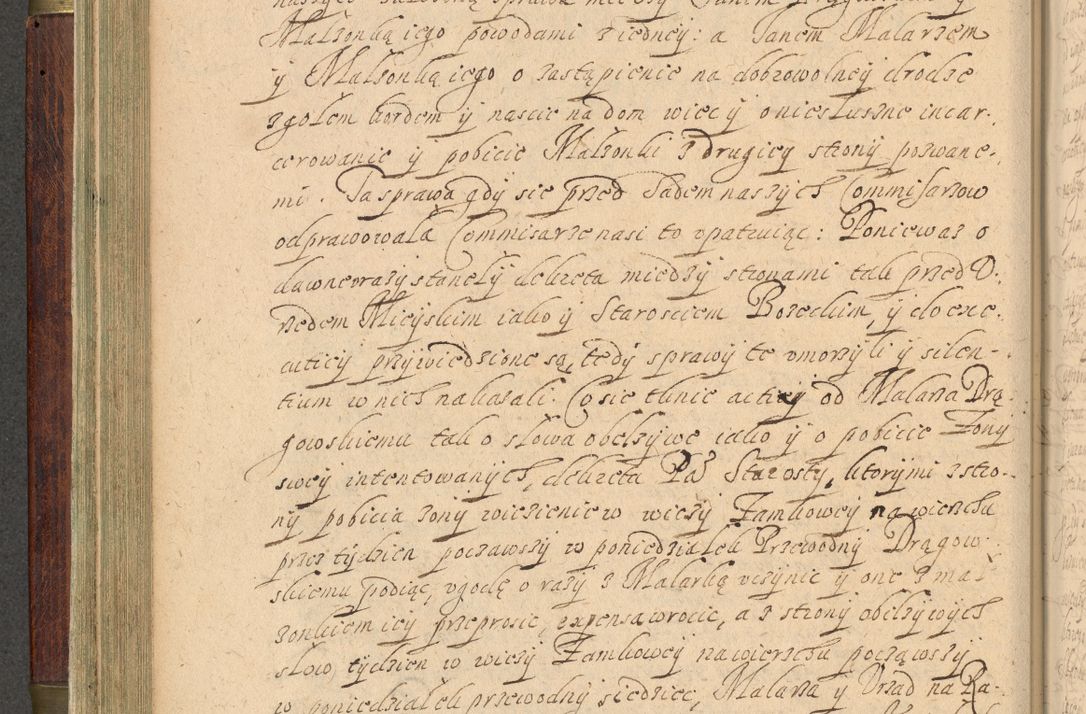 Małżonką iego powodami z iedney: a Janem Malarzem
y Małżonką iego o zastąpienie na dobrowolney drodze
z gołem kordem y naście na dom wiec y o niesłuszne incar-
cerowanie y pobicie Małżonki z drugiey strony pozwane-
mi. Ta sprawa gdy sie przed Sądem naszych Commisarzow
odprawowała Commisarze nasi to vpatruiąc: Ponieważ o
dawne razy stanęły dekreta miedzy stronami tak przed V-
rzedem Mieyskim iako y Starosciem Bozeckim, y do exe-
cutiey przywiedzione są, tedy sprawy te vmorzyli y silen-
tium w nich nakazali. Co sie tknie actiey od Malarza Drą-
gowskiemu tak o słowa obelzywe iako y o pobicie Zony
swey intentowanych, dekreta Pa Starosty, ktorymi z stro-
ny pobicia zony wiezienie w wiezy Zamkowey na wierzchu
przez tydzien począwszy w poniedziałek Przewodny Drągow-
skiemu podiąć, vgodę o razy z Malarką vczynic y one z mał-
zonkiem iey przeprosic, expensa wrocic, a z strony obelzywych
słow, tydzien w wiezy Zamkowey na wierzchu począwszy
w poniedziałek przewodny siedziec, Malarza y Vrząd na Ra-